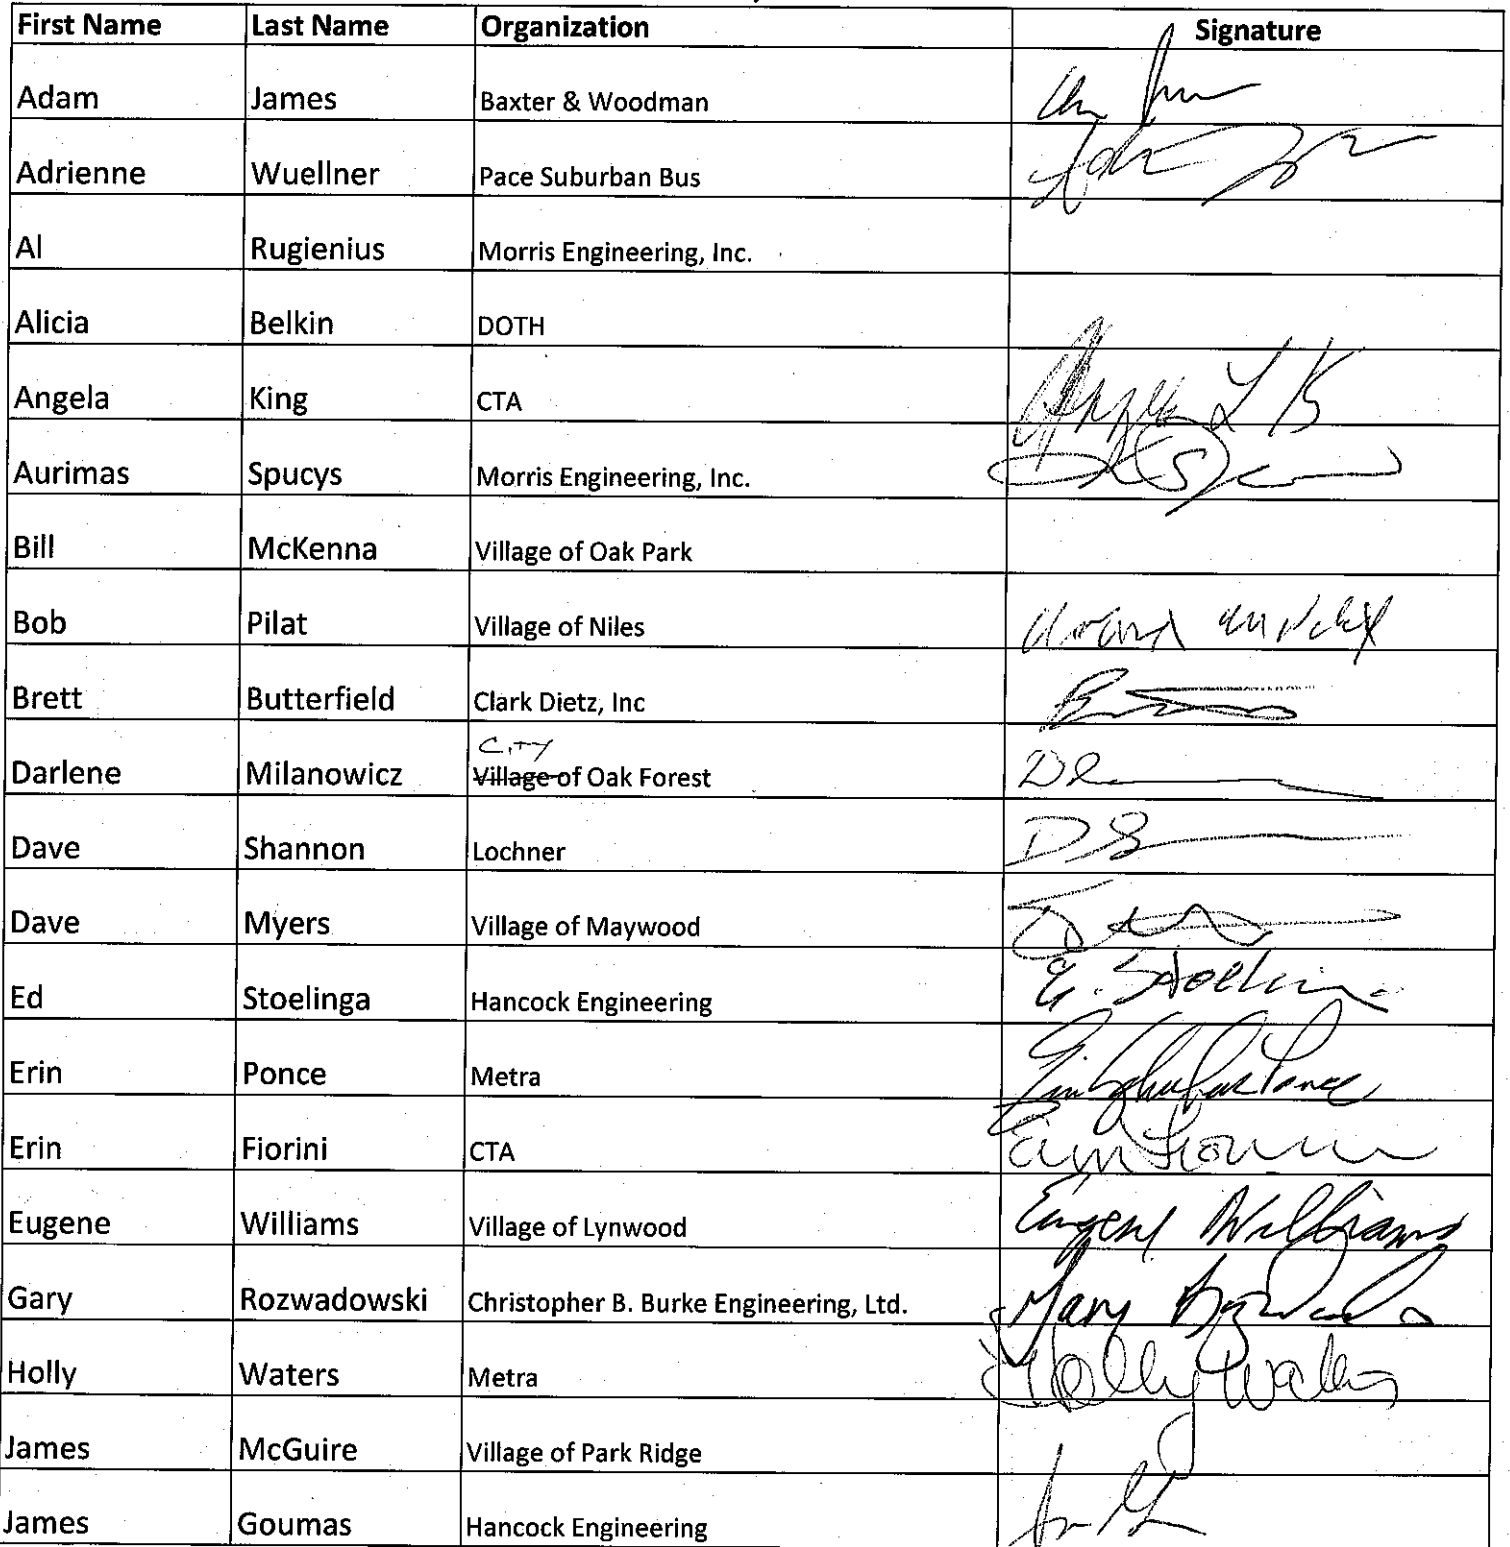 First Name Last Name Organization Signature
Adam James Baxter & Woodman
Adrienne Wuellner Pace Suburban Bus
Al Rugienius Morris Engineering, Inc.
Alicia Belkin DOTH
Angela King CTA Angela L K
Aurimas Spucys Morris Engineering, Inc.
Bill McKenna Village of Oak Park
Bob Pilat Village of Niles
Brett Butterfield Clark Dietz, Inc
CITY
Darlene Milanowicz Village of Oak Forest
Dave Shannon Lochner DS
Dave Myers Village of Maywood
Ed Stoelinga Hancock Engineering E. Stoelinga
Erin Ponce Metra
Erin Fiorini CTA Erin Fiorini
Eugene Williams Village of Lynwood Eugene Williams
Gary Rozwadowski Christopher B. Burke Engineering, Ltd. Gary
Holly Waters Metra Holly Waters
James McGuire Village of Park Ridge
James Goumas Hancock Engineering